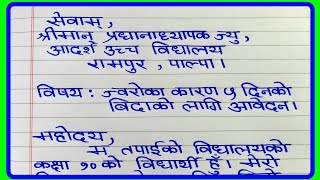 सेवाम्,
श्रीमान् प्रधानाध्यापक ज्यु,
आदर्श उच्च विद्यालय
रामपुर, पाल्पा।
विषय: ज्वरोका कारण ५ दिनको
बिदाको लागि आवेदन।
महोदय,
म तपाईको विद्यालयको
कक्षा १० को विद्यार्थी हुँ। मेरो